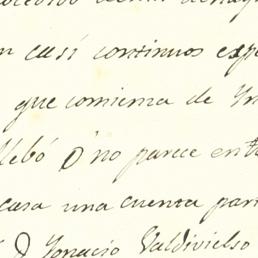 n casi continuos exp
que comienza de Yn
llebó ó no parece entr
casa una cuenta par
D Ygnacio Valdivielso